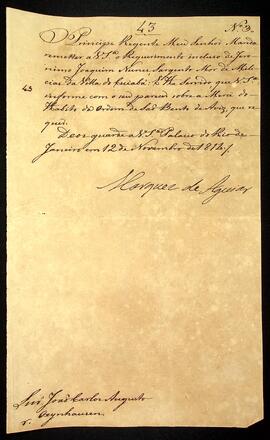 43
Nº 3.
O Principe Regente Meu Senhor Manda
remetter a V. Sª o Requerimento incluso de Jero-
nimo Joaquim Nunes Sargento Mór de Mili-
cias Da Villa de
He Servido que V. Sª
43
informe com o seu parecer sobre a Mercê do
Habito da Ordem de São Bento de Aviz, que re-
quer.
Deos guarde a V. Sª Palacio do Rio de
Janeiro em 12 de Novembro de 1814.
Marquez de Aguiar
Snr. João Carlos Augusto
Oeynhausen.